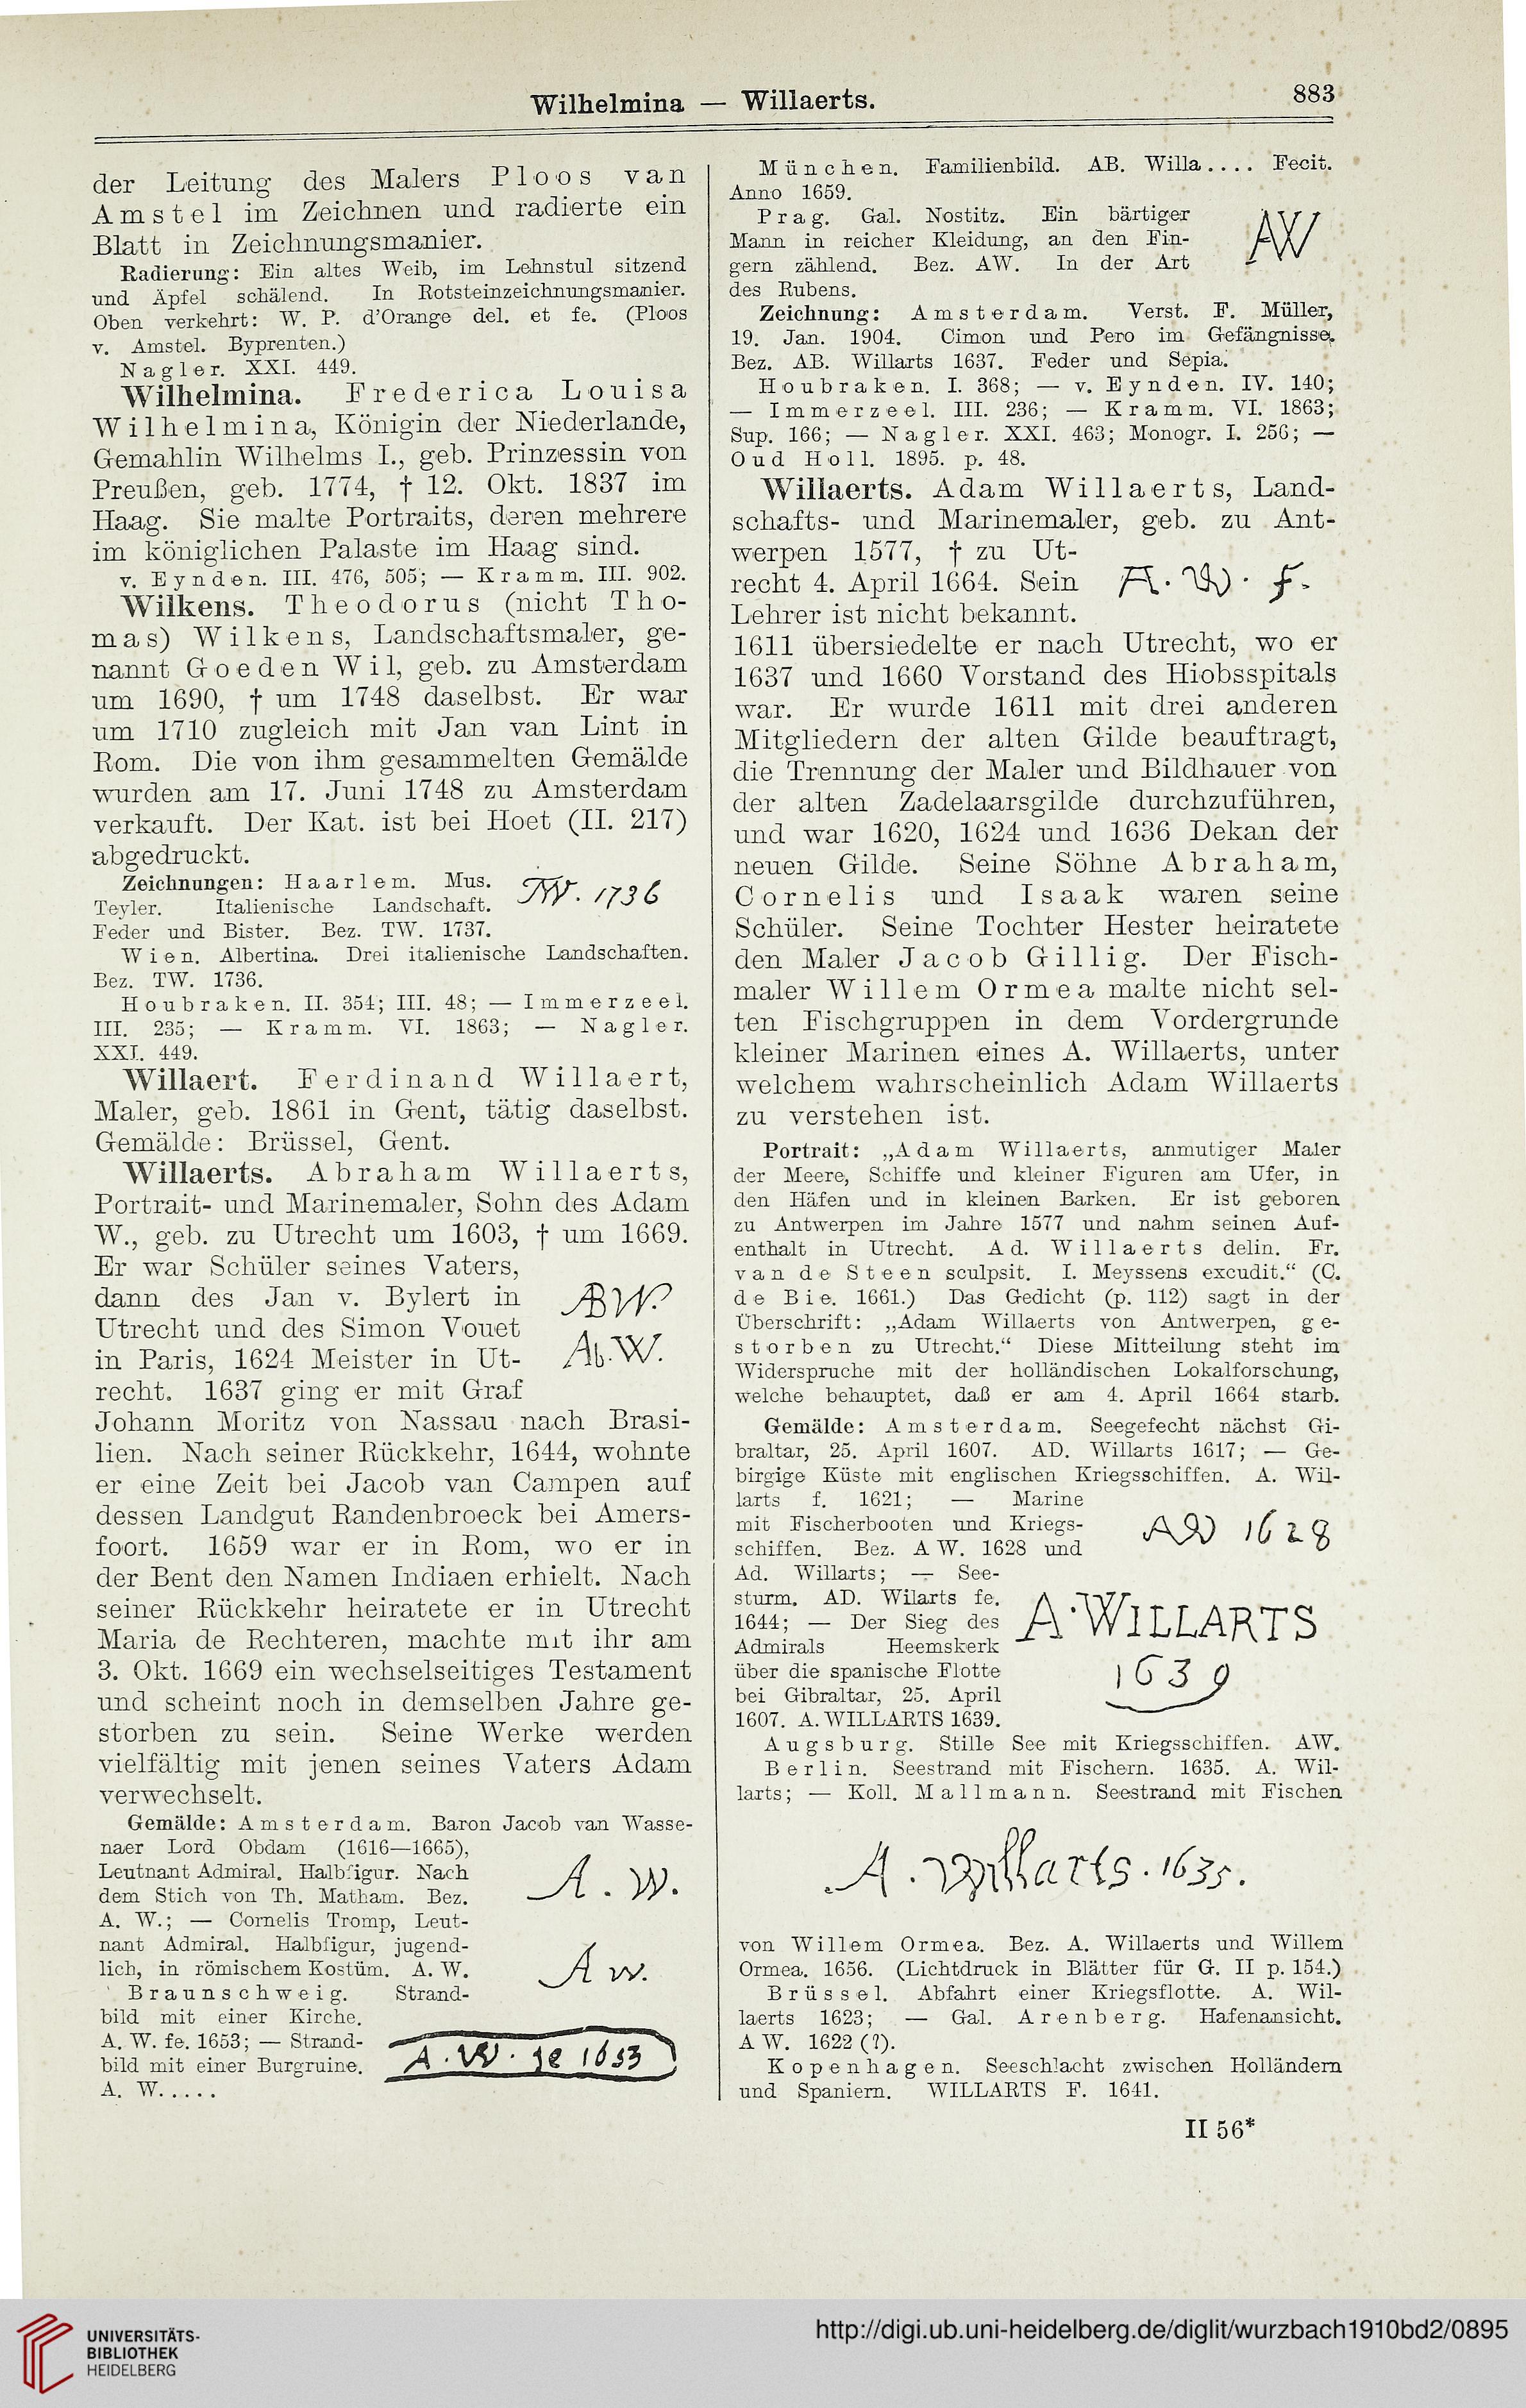 Wilhelmina — Willaerts.
883
der Leitung des Malers Ploos van
Amstel im Zeichnen und radierte ein
Blatt in Zeichnungsmanier.
Radierung: Ein altes Weib, im Lehnstul sitzend
und Äpfel schälend. In Rotsteinzeichnungsmanier.
Oben verkehrt: W. P. d'Orange del. et fe. (Ploos
v. Amstel. Byprenten.)
Nagler. XXI. 449.
Wilhelmina. Frederica Louisa
Wilhelmina, Königin der Niederlande,
Gemahlin Wilhelms I., geb. Prinzessin von
Preußen, geb. 1774, † 12. Okt. 1837 im
Haag. Sie malte Portraits, deren mehrere
im königlichen Palaste im Haag sind.
v. Eynden. III. 476, 505; — Kramm. III. 902.
Wilkens. Theodorus (nicht Tho-
mas) Wilkens, Landschaftsmaler, ge-
nannt Goeden Wil, geb. zu Amsterdam
um 1690, † um 1748 daselbst. Er war
um 1710 zugleich mit Jan van Lint in
Rom. Die von ihm gesammelten Gemälde
wurden am 17. Juni 1748 zu Amsterdam
verkauft. Der Kat. ist bei Hoet (II. 217)
abgedruckt.
Zeichnungen: Haarlem. Mus.
Teyler. Italienische Landschaft.
TW. 1736
Feder und Bister. Bez. TW. 1737.
Wien. Albertina. Drei italienische Landschaften.
Bez. TW. 1736.
Houbraken. II. 354; III. 48; — Immerzeel.
III. 235; — Kramm. VI. 1863; — Nagler.
XXI. 449.
Willaert. Ferdinand Willaert,
Maler, geb. 1861 in Gent, tätig daselbst.
Gemälde: Brüssel, Gent.
Willaerts. Abraham Willaerts,
Portrait- und Marinemaler, Sohn des Adam
W., geb. zu Utrecht um 1603, † um 1669.
Er war Schüler seines Vaters,
dann des Jan v. Bylert in
ABW
Utrecht und des Simon Vouet
in Paris, 1624 Meister in Ut-
Ab.W.
recht. 1637 ging er mit Graf
Johann Moritz von Nassau nach Brasi-
lien. Nach seiner Rückkehr, 1644, wohnte
er eine Zeit bei Jacob van Campen auf
dessen Landgut Randenbroeck bei Amers-
foort. 1659 war er in Rom, wo er in
der Bent den Namen Indiaen erhielt. Nach
seiner Rückkehr heiratete er in Utrecht
Maria de Rechteren, machte mit ihr am
3. Okt. 1669 ein wechselseitiges Testament
und scheint noch in demselben Jahre ge-
storben zu sein. Seine Werke werden
vielfältig mit jenen seines Vaters Adam
verwechselt.
Gemälde: Amsterdam. Baron Jacob van Wasse-
naer Lord Obdam (1616—1665),
Leutnant Admiral. Halbfigur. Nach
dem Stich von Th. Matham. Bez.
A. W.
A. W.; — Cornelis Tromp, Leut-
nant Admiral. Halbfigur, jugend-
lich, in römischem Kostüm. A. W.
A W.
Braunschweig. Strand-
bild mit einer Kirche.
A. W. fe. 1653; — Strand-
bild mit einer Burgruine.
A. W. fe 1653
A. W.....
München. Familienbild. AB. Willa.... Fecit.
Anno 1659.
Prag. Gal. Nostitz. Ein bärtiger
Mann in reicher Kleidung, an den Fin-
gern zählend. Bez. AW. In der Art
AW
des Rubens.
Zeichnung: Amsterdam. Verst. F. Müller,
19. Jan. 1904. Cimon und Pero im Gefängnisse.
Bez. AB. Willarts 1637. Feder und Sepia.
Houbraken. I. 368; — v. Eynden. IV. 140;
— Immerzeel. III. 236; — Kramm. VI. 1863;
Sup. 166; — Nagler. XXI. 463; Monogr. I. 256; —
Oud Holl. 1895. p. 48.
Willaerts. Adam Willaerts, Land-
schafts- und Marinemaler, geb. zu Ant-
werpen 1577, † zu Ut-
recht 4. April 1664. Sein
A. W. f.
Lehrer ist nicht bekannt.
1611 übersiedelte er nach Utrecht, wo er
1637 und 1660 Vorstand des Hiobsspitals
war. Er wurde 1611 mit drei anderen
Mitgliedern der alten Gilde beauftragt,
die Trennung der Maler und Bildhauer von
der alten Zadelaarsgilde durchzuführen,
und war 1620, 1624 und 1636 Dekan der
neuen Gilde. Seine Söhne Abraham,
Cornelis und Isaak waren seine
Schüler. Seine Tochter Hester heiratete
den Maler Jacob Gillig. Der Fisch-
maler Willem Ormea malte nicht sel-
ten Fischgruppen in dem Vordergrunde
kleiner Marinen eines A. Willaerts, unter
welchem wahrscheinlich Adam Willaerts
zu verstehen ist.
Portrait: „Adam Willaerts, anmutiger Maler
der Meere, Schiffe und kleiner Figuren am Ufer, in
den Häfen und in kleinen Barken. Er ist geboren
zu Antwerpen im Jahre 1577 und nahm seinen Auf-
enthalt in Utrecht. Ad. Willaerts delin. Fr.
van de Steen sculpsit. I. Meyssens excudit.“ (C.
de Bie. 1661.) Das Gedicht (p. 112) sagt in der
Überschrift: „Adam Willaerts von Antwerpen, ge-
storben zu Utrecht.“ Diese Mitteilung steht im
Widerspruche mit der holländischen Lokalforschung,
welche behauptet, daß er am 4. April 1664 starb.
Gemälde: Amsterdam. Seegefecht nächst Gi-
braltar, 25. April 1607. AD. Willarts 1617; — Ge-
birgige Küste mit englischen Kriegsschiffen. A. Wil-
larts f. 1621; — Marine
mit Fischerbooten und Kriegs-
schiffen. Bez. AW. 1628 und
AW 1628
Ad. Willarts; — See-
sturm. AD. Wilarts fe.
1644; — Der Sieg des
Admirals Heemskerk
A·WILLARTS
über die spanische Flotte
1639
bei Gibraltar, 25. April
1607. A. WILLARTS 1639.
Augsburg. Stille See mit Kriegsschiffen. AW.
Berlin. Seestrand mit Fischern. 1635. A. Wil-
larts; — Koll. Mallmann. Seestrand mit Fischen
A. Willarts. 1635.
von Willem Ormea. Bez. A. Willaerts und Willem
Ormea. 1656. (Lichtdruck in Blätter für G. II p. 154.)
Brüssel. Abfahrt einer Kriegsflotte. A. Wil-
laerts 1623; — Gal. Arenberg. Hafenansicht.
AW. 1622 (?).
Kopenhagen. Seeschlacht zwischen Holländern
und Spaniern. WILLARTS F. 1641.
II 56*
UNIVERSITÄTS-
BIBLIOTHEK
HEIDELBERG
http://digi.ub.uni-heidelberg.de/diglit/wurzbach1910bd2/0895